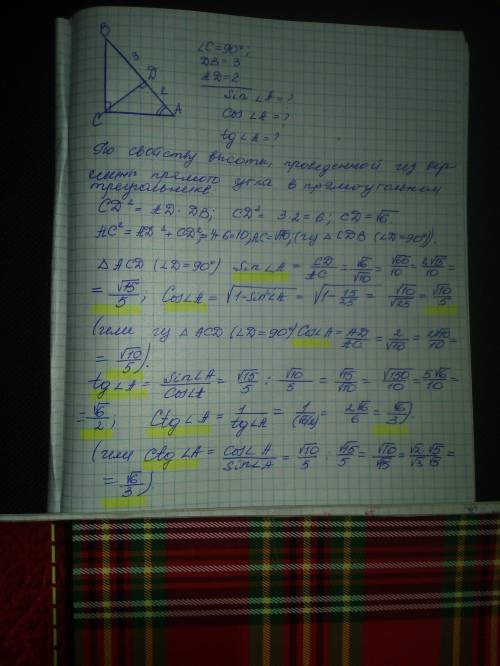 B
3
D
2
C
A
∠C=90°;
DB=3
AD=2
Sin∠A=?
Cos∠A=?
tg∠A=?
По свойству высоты, проведенной из вер-
шины прямого угла в прямоугольном
треугольнике
CD²=AD·DB; CD²=3·2=6; CD=√6.
AC²=AD²+CD²=4+6=10; AC=√10; (из △CDB (∠D=90°)).
△ACD (∠D=90°) Sin∠A=CD/AC=√6/√10=√60/10=2√15/10=
=√15/5; Cos∠A=√(1-Sin²∠A)=√(1-15/25)=√10/√25=√10/5
(или из △ACD (∠D=90°) Cos∠A=AD/AC=2/√10=2√10/10=
=√10/5).
tg∠A=Sin∠A/Cos∠A=√15/5:√10/5=√15/√10=√150/10=5√6/10=
=√6/2; Ctg∠A=1/tg∠A=1/(√6/2)=2√6/6=√6/3;
(или Ctg∠A=Cos∠A/Sin∠A=√10/5:√15/5=√10/√15=√2·√5/√3·√5=
=√6/3)